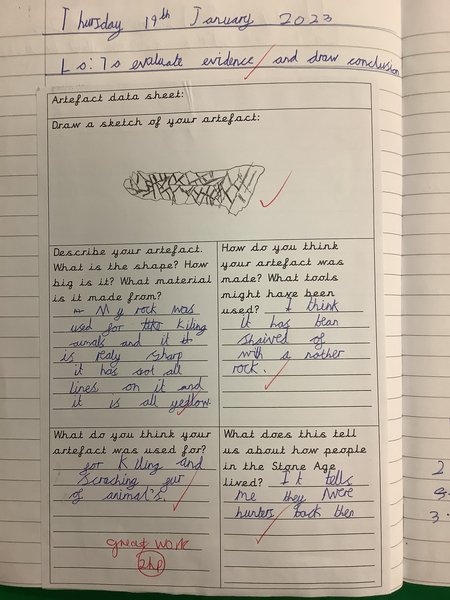 Thursday 19th January 2023
Lo: To evaluate evidence and draw conclusion
Artefact data sheet:
Draw a sketch of your artefact:
Describe your artefact.
What is the shape? How
big is it? What material
is it made from?
My rock was
used for kiling
aumals and it
is realy sharp
it has got all
lines on it and
it is all yellow.
How do you think
your artefact was
made? What tools
might have been
used? I think
it has bean
shaived of
with a nother
rock.
What do you think your
artefact was used for?
for Kiling and
Scraching fur
of animal's.
great work
2hp
What does this tell
us about how people
in the Stone Age
lived? It tells
me they were
hunters back then
2
3.